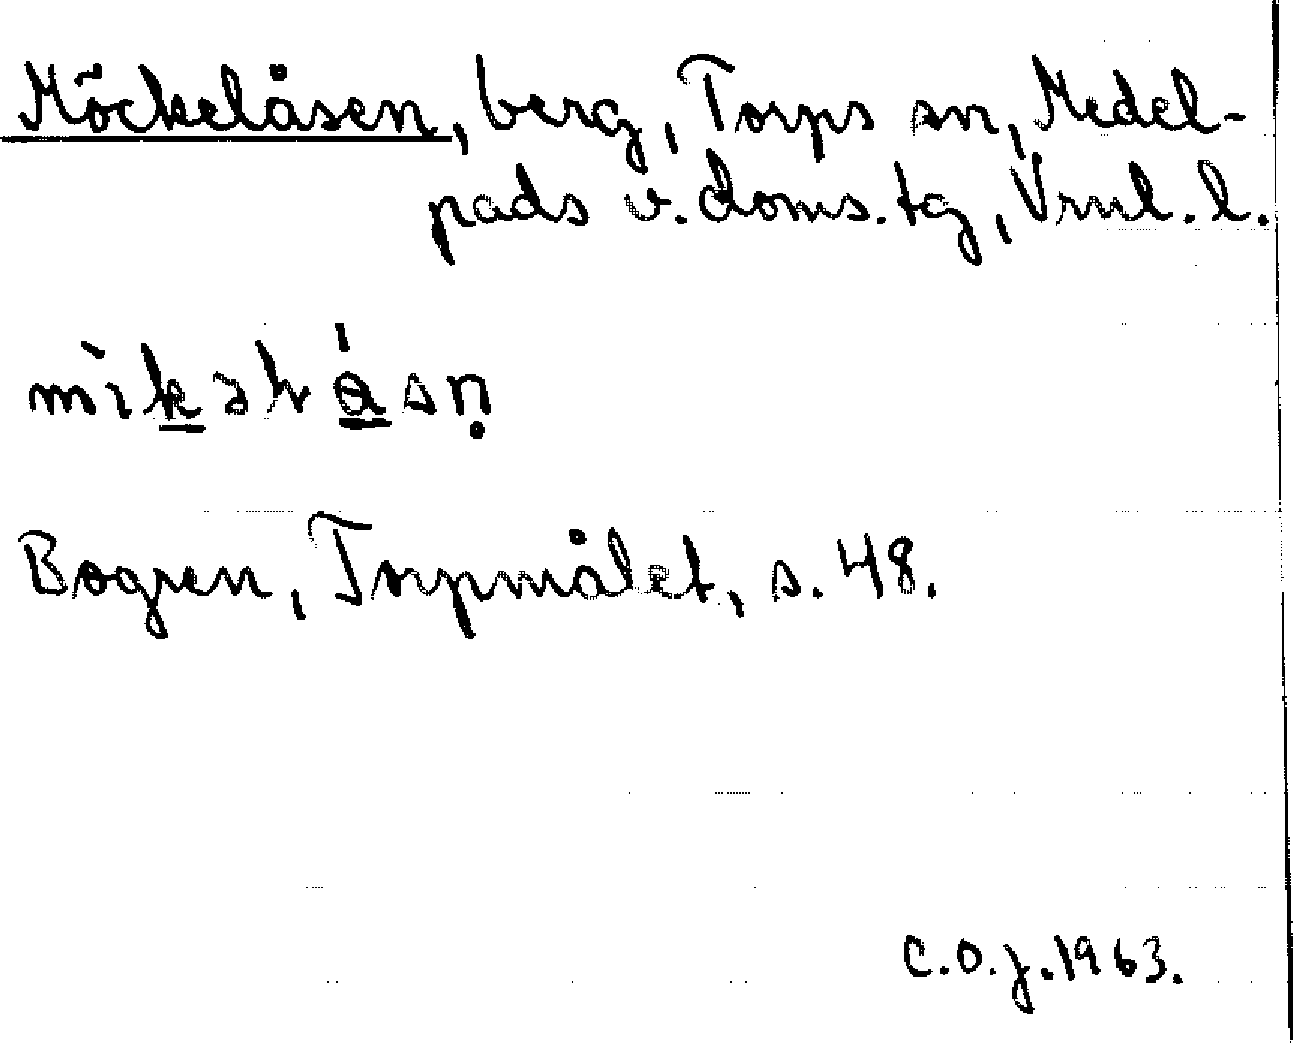 Möckelåsen, berg, Torps sn, Medel-
pads v. doms. tg, Vrnl. l.
Bogren, Torpmålet, s. 48.
C.O.J. 1963.